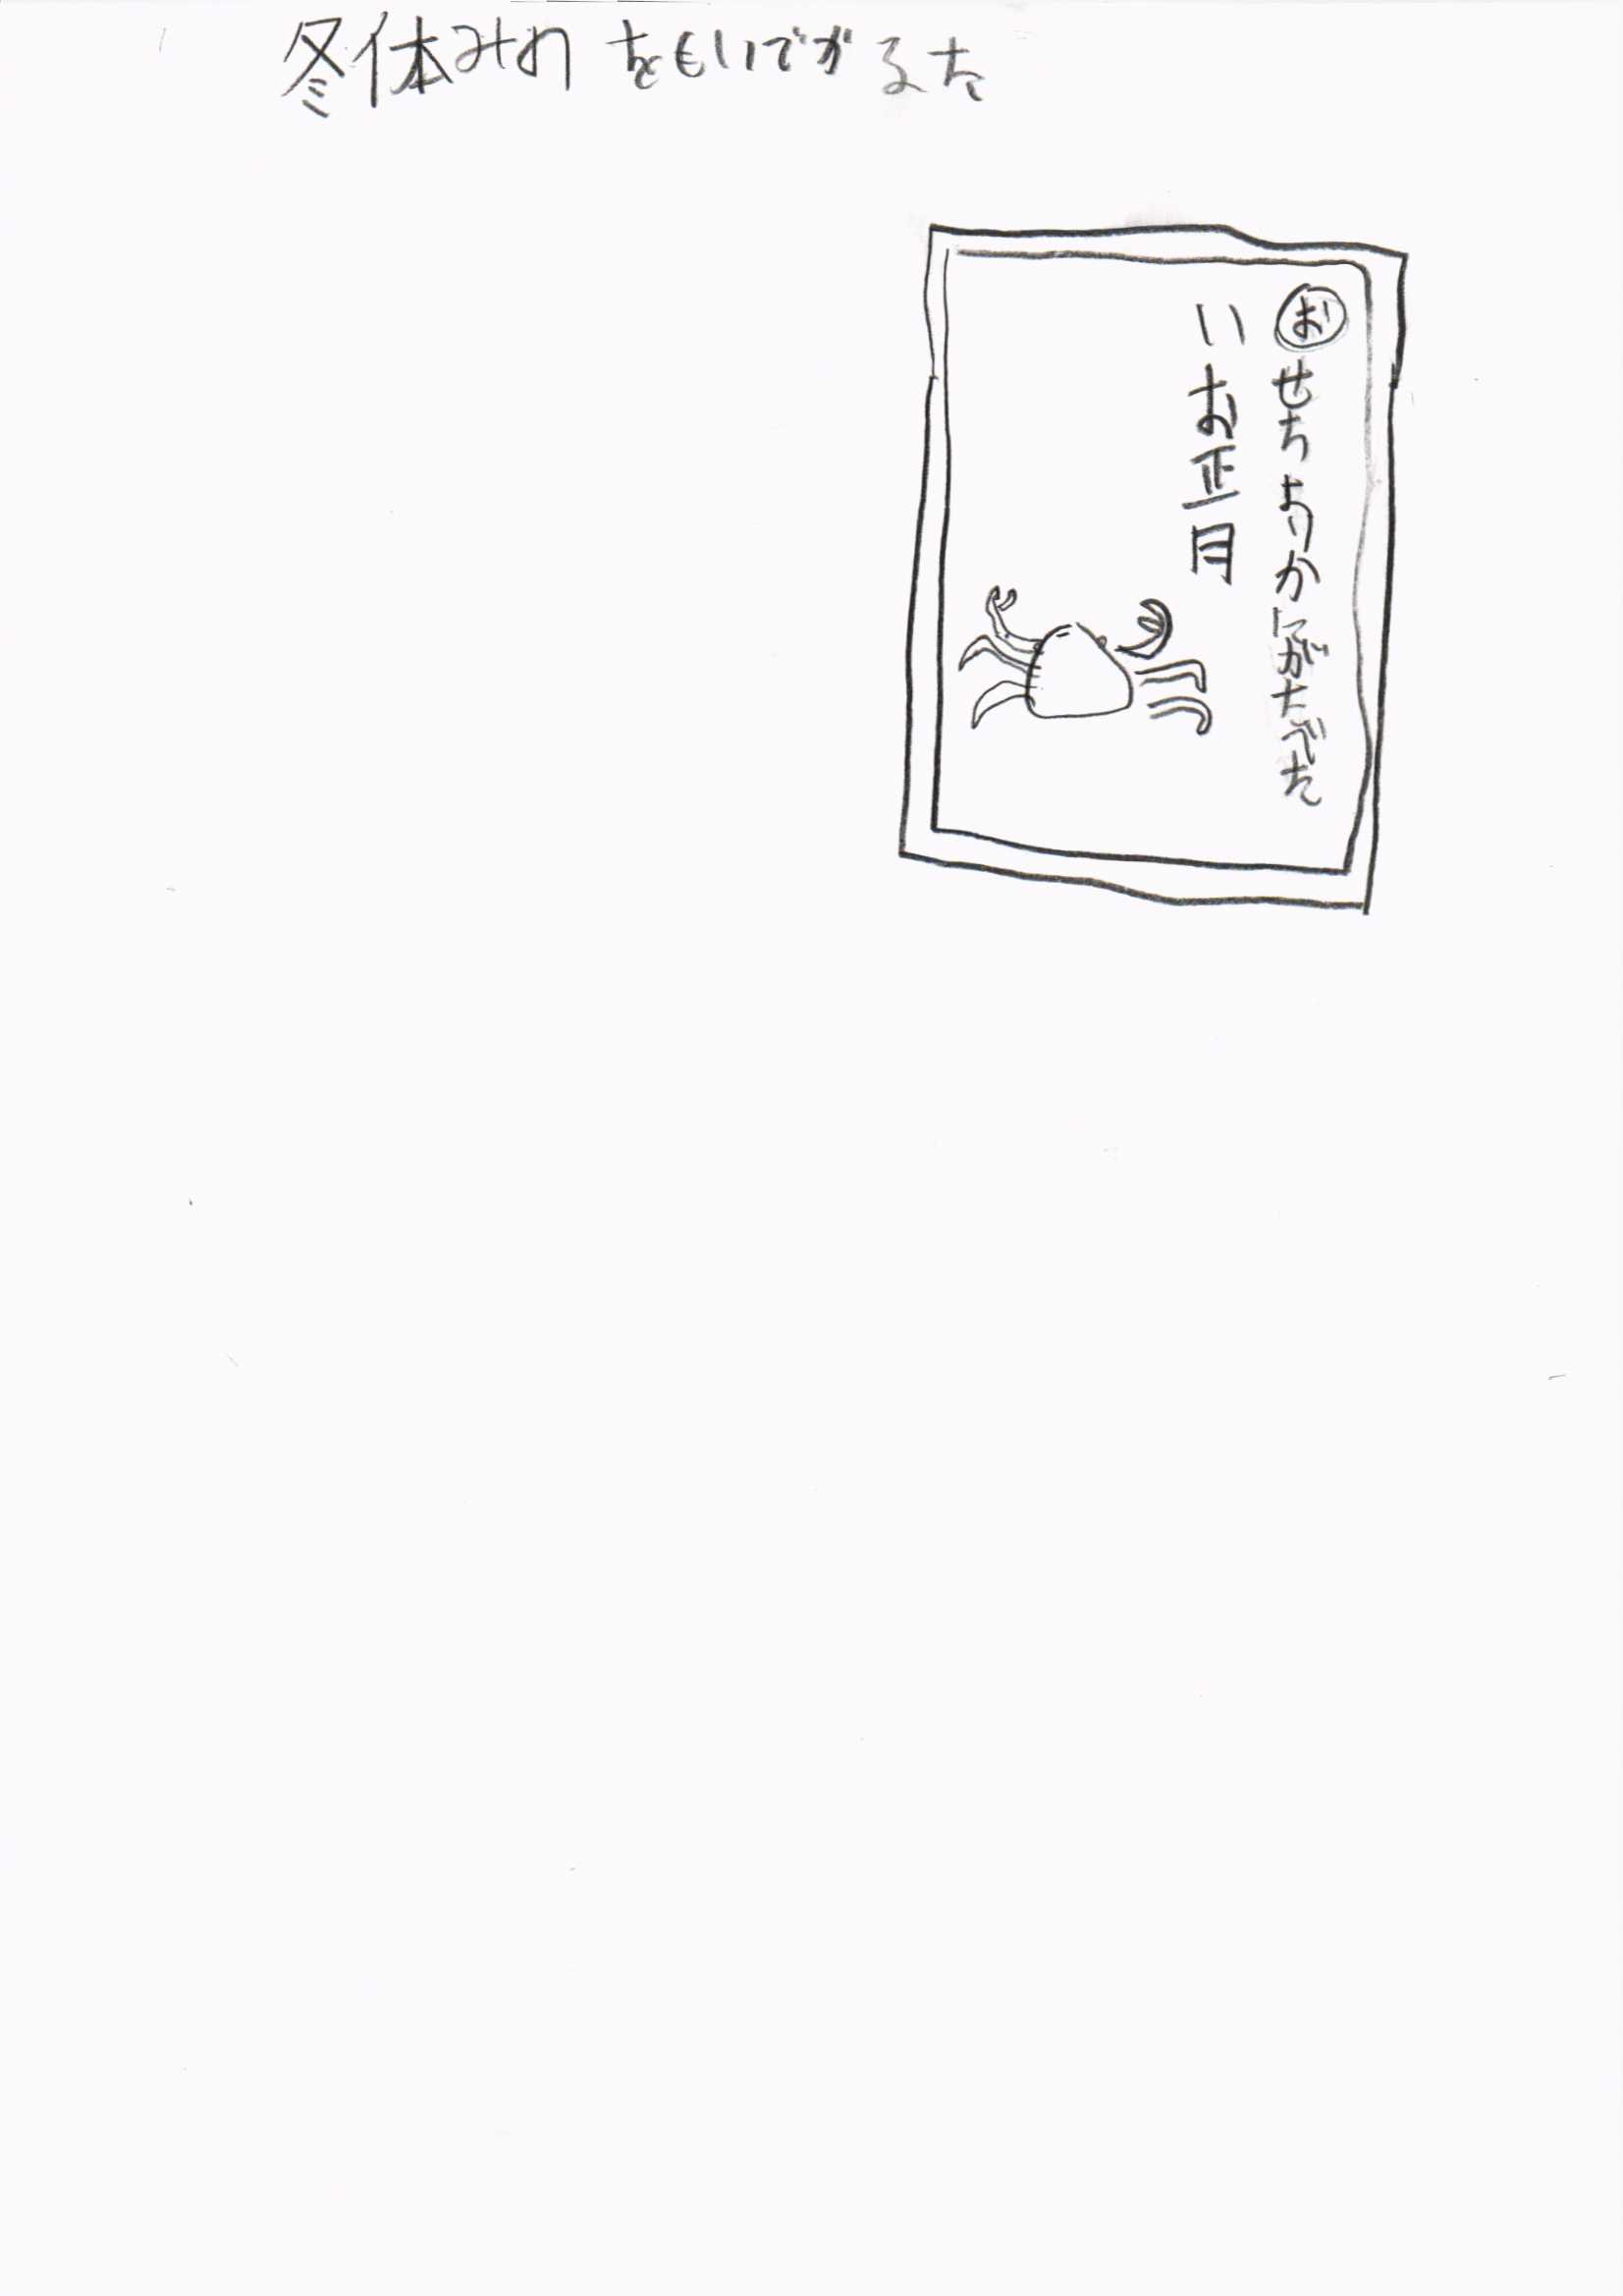 冬休みの をもいでかるた
おせちよりかにがたべた
いお正月